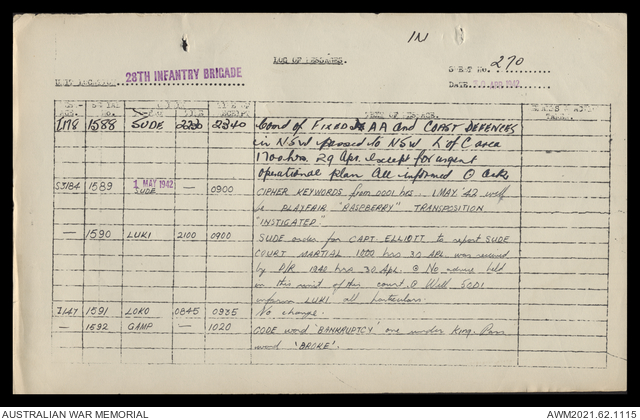 IN
LOG OF MESSAGES.
SHEET No. 270
28TH INFANTRY BRIGADE
DATE 30 APR 1942
I178 1588 SUDE 2230 2340 of FIXED AA AND COAST DEFENCES
in NSW passed to NSW L of C area
1700 hrs 29 Apr. except for urgent
operational plan All informed
S3184 1589 1 MAY 1942 SUDE — 0900 CIPHER KEYWORDS from 0001 hrs 1 MAY '42 will
be PLAYFAIR "RASPBERRY" TRANSPOSITION
"INSTIGATED"
— 1590 LUKI 2100 0900 SUDE order for CAPT. ELLIOTT to report SUDE
COURT MARTIAL 1000 hrs 30 APL was received
by D/R 1940 hrs 30 Apl. @ No advice held
in this unit of this court @ Will SODI
inform LUKI all particulars.
I147 1591 LOKO 0845 0935 No change.
— 1592 GAMP — 1020 CODE word 'BANKRUPTCY' one under King. Pass
word 'BROKE'.
AUSTRALIAN WAR MEMORIAL
AWM2021.62.1115